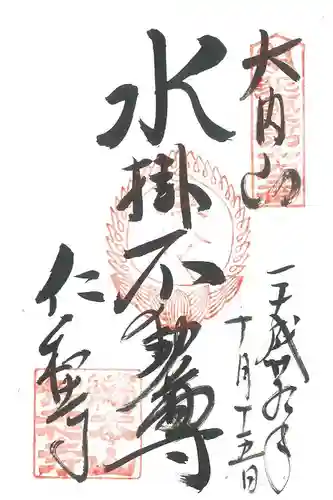 大内山
平成廿九年
十月十五日
水掛不動尊
仁和寺